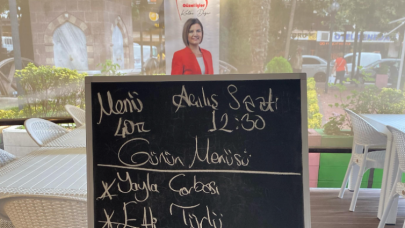 Menü Açılış Saati
40TL 12:30
Günün Menüsü
* Yayla Çorbası
* E.Ak Türlü